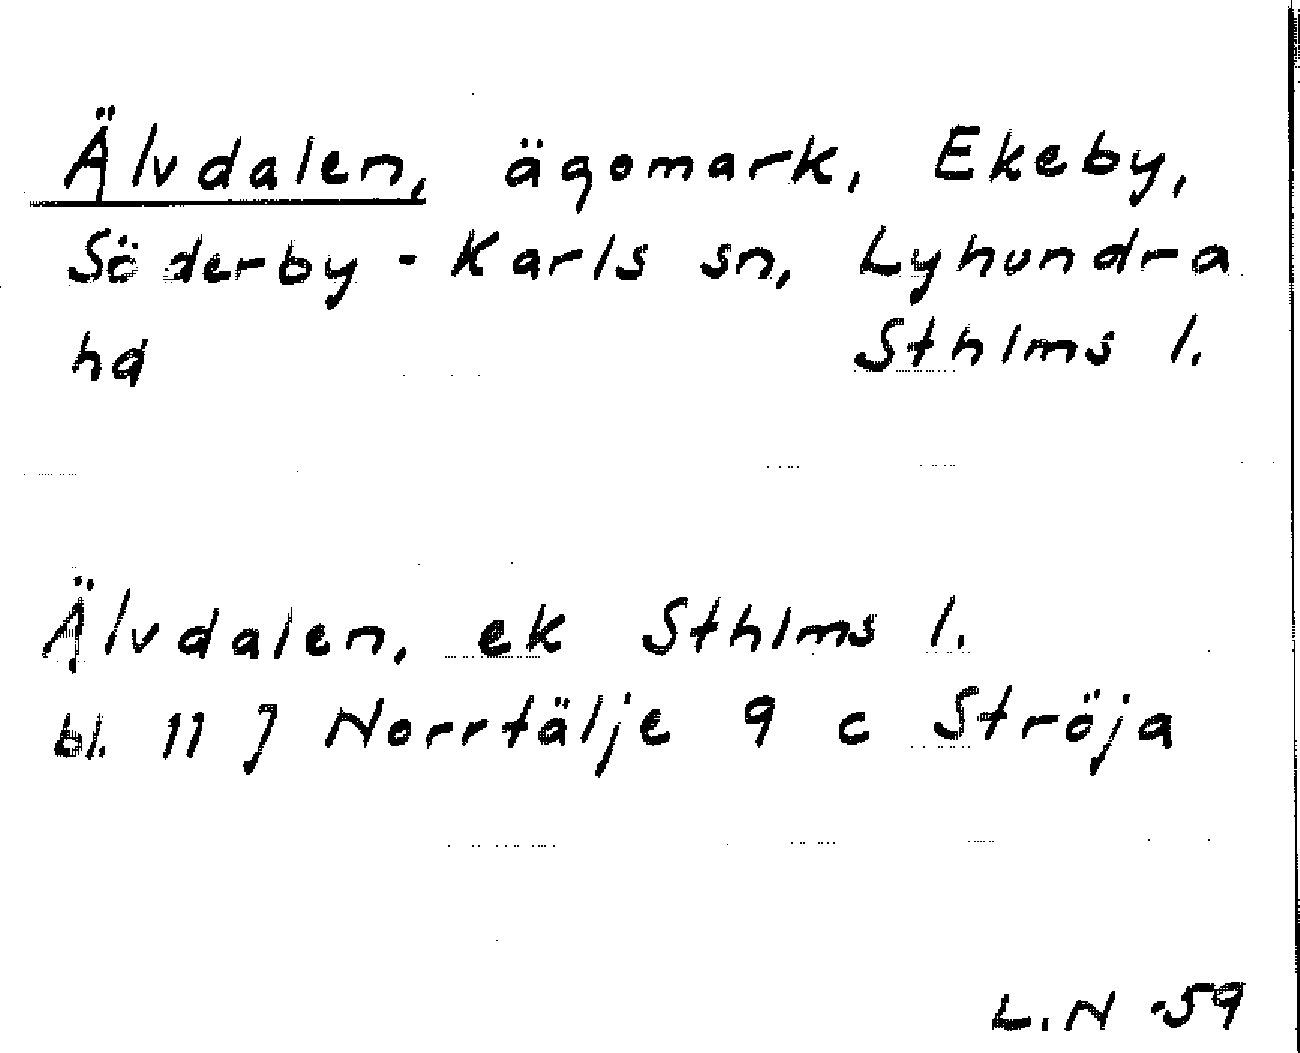 Älvdalen, ägomark, Ekeby,
Söderby - Karls sn, Lyhundra
hd Sthlms l.
Älvdalen, ek Sthlms l.
bl. 11 J Norrtälje 9 c Ströja
L.N -59